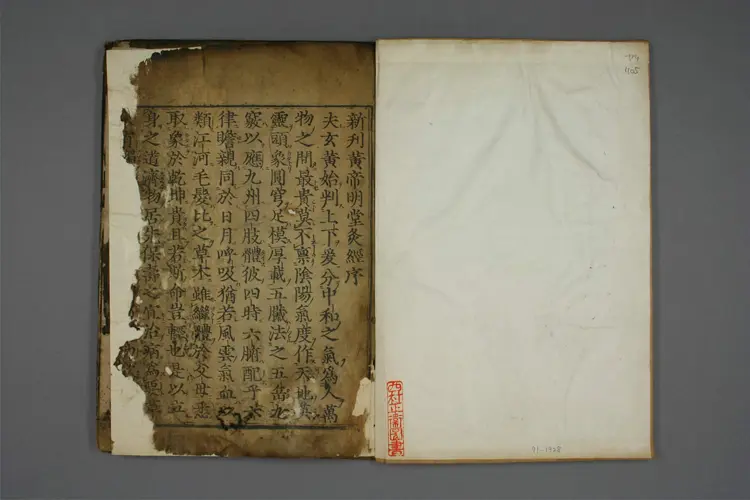 新刋黃帝明堂灸經序
夫玄黃始判上下爰分中和之氣爲人萬
物之間最貴莫不禀陰陽氣度作天地
靈頭象圓官足模厚載五臟法之五岳九
竅以應九州四肢體彼四時六腑配乎六
律瞻視同於日月呼吸猶若風雲氣血以
類江河毛髮比之草木雖繼體於父母悉
取象於乾坤貴且若斯命豈輕也是以立
身之道濟物居先保壽之宜治病爲要
91-1928